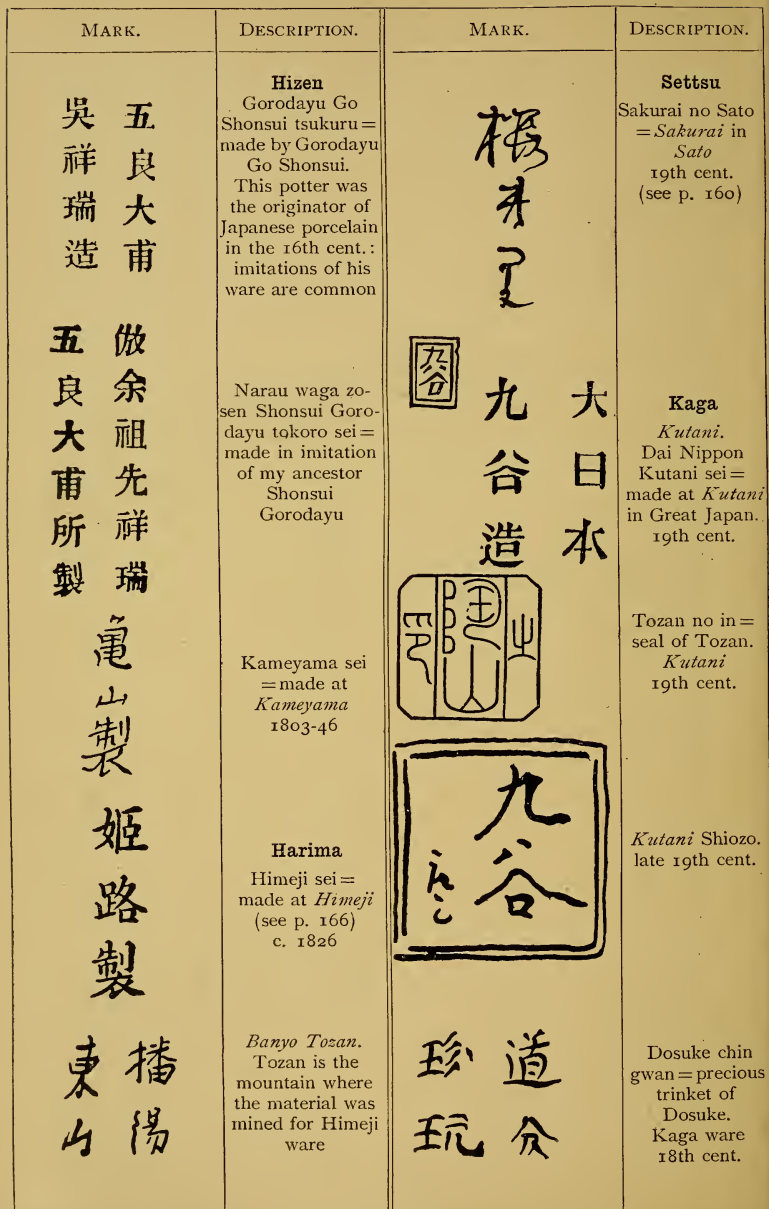 MARK.
DESCRIPTION.
MARK.
DESCRIPTION.
五良大甫
吳祥瑞造
Hizen
Gorodayu Go
Shonsui tsukuru =
made by Gorodayu
Go Shonsui.
This potter was
the originator of
Japanese porcelain
in the 16th cent. :
imitations of his
ware are common
倣余祖先祥瑞
五良大甫所製
Narau waga zo-
sen Shonsui Goro-
dayu tokoro sei =
made in imitation
of my ancestor
Shonsui
Gorodayu
亀山製
Kameyama sei
= made at
Kameyama
1803-46
姬路製
Harima
Himeji sei =
made at Himeji
(see p. 166)
c. 1826
播陽
東山
Banyo Tozan.
Tozan is the
mountain where
the material was
mined for Himeji
ware
櫻井里
Settsu
Sakurai no Sato
= Sakurai in
Sato
19th cent.
(see p. 160)
九谷
大日本
九谷造
Kaga
Kutani.
Dai Nippon
Kutani sei =
made at Kutani
in Great Japan.
19th cent.
之
陶山
印
Tozan no in =
seal of Tozan.
Kutani
19th cent.
九谷
Kutani Shiozo.
late 19th cent.
道
珍玩
Dosuke chin
gwan = precious
trinket of
Dosuke.
Kaga ware
18th cent.